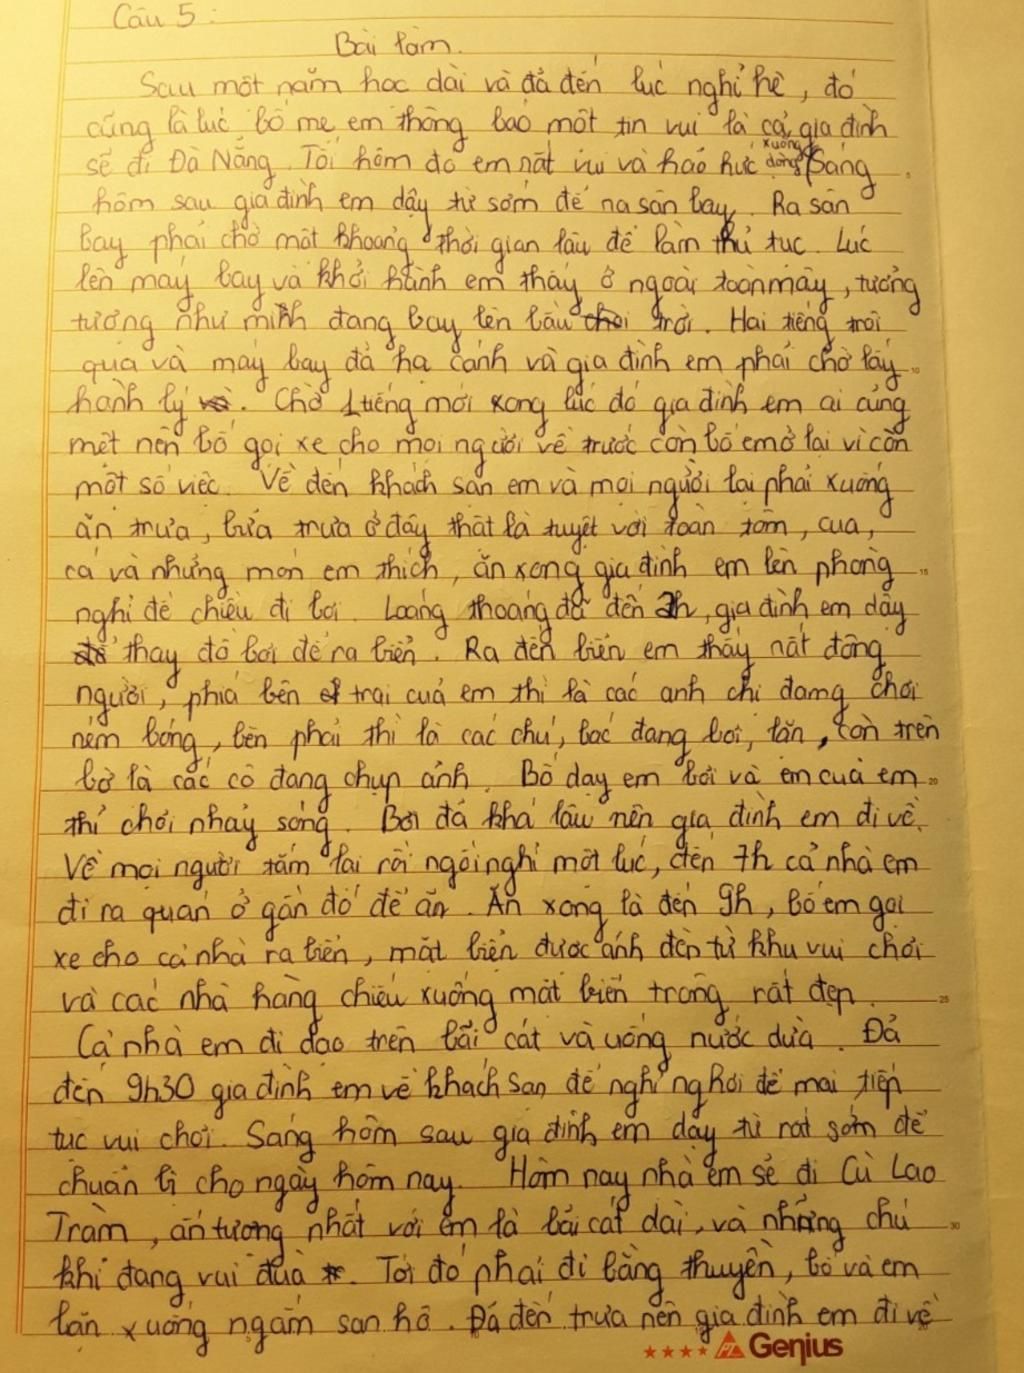 Câu 5:
Bài làm.
Sau một năm học dài và đã đến lúc nghỉ hè, đó
cũng là lúc bố mẹ em thông báo một tin vui là cả gia đình
sẽ đi Đà Nẵng. Tối hôm đó em nất vui và háo hức xuống dòng Sáng
hôm sau gia đình em dậy từ sớm để na sân bay. Ra sân
bay phải chờ một khoảng thời gian lâu để làm thủ tục. Lúc
lên máy bay và khởi hành em thấy ở ngoài toàn mây, tưởng
tượng như mình đang bay lên bầu trời. Hai tiếng trôi
qua và máy bay đã hạ cánh và gia đình em phải chờ lấy
hành lý. Chờ 1 tiếng mới xong lúc đó gia đình em ai cũng
mệt nên bố gọi xe cho mọi người về trước còn bố em ở lại vì còn
một số việc. Về đến khách sạn em và mọi người lại phải xuống
ăn trưa, bữa trưa ở đây thật là tuyệt với toàn tôm, cua,
cá và những món em thích, ăn xong gia đình em lên phòng
nghỉ để chiều đi bơi. Loáng thoáng đã đến 2h, gia đình em dậy
thay đồ bơi để ra biển. Ra đến biển em thấy nất đông
người, phía bên trái của em thì là các anh chị đang chơi
ném bóng, bên phải thì là các chú, bác đang bơi, lặn, còn trên
bờ là các cô đang chụp ảnh. Bố dạy em bơi và em của em
thì chơi nhảy sóng. Bơi đã khá lâu nên gia đình em đi về.
Về mọi người tắm lại rồi ngồi nghỉ một lúc, đến 7h cả nhà em
đi ra quán ở gần đó để ăn. Ăn xong là đến 9h, bố em gọi
xe cho cả nhà ra biển, mặt biển được ánh đèn từ khu vui chơi
và các nhà hàng chiếu xuống mặt biển trông rất đẹp.
Cả nhà em đi dạo trên bãi cát và uống nước dừa. Đã
đến 9h30 gia đình em về khách sạn để nghỉ ngơi để mai tiếp
tục vui chơi. Sáng hôm sau gia đình em dạy từ rất sớm để
chuẩn bị cho ngày hôm nay. Hôm nay nhà em sẽ đi Cù Lao
Tràm, ấn tượng nhất với em là bãi cát dài, và những chú
khỉ đang vui đùa. Tới đó phải đi bằng thuyền, bố và em
lặn xuống ngắm san hô. Đã đến trưa nên gia đình em đi về
Genius